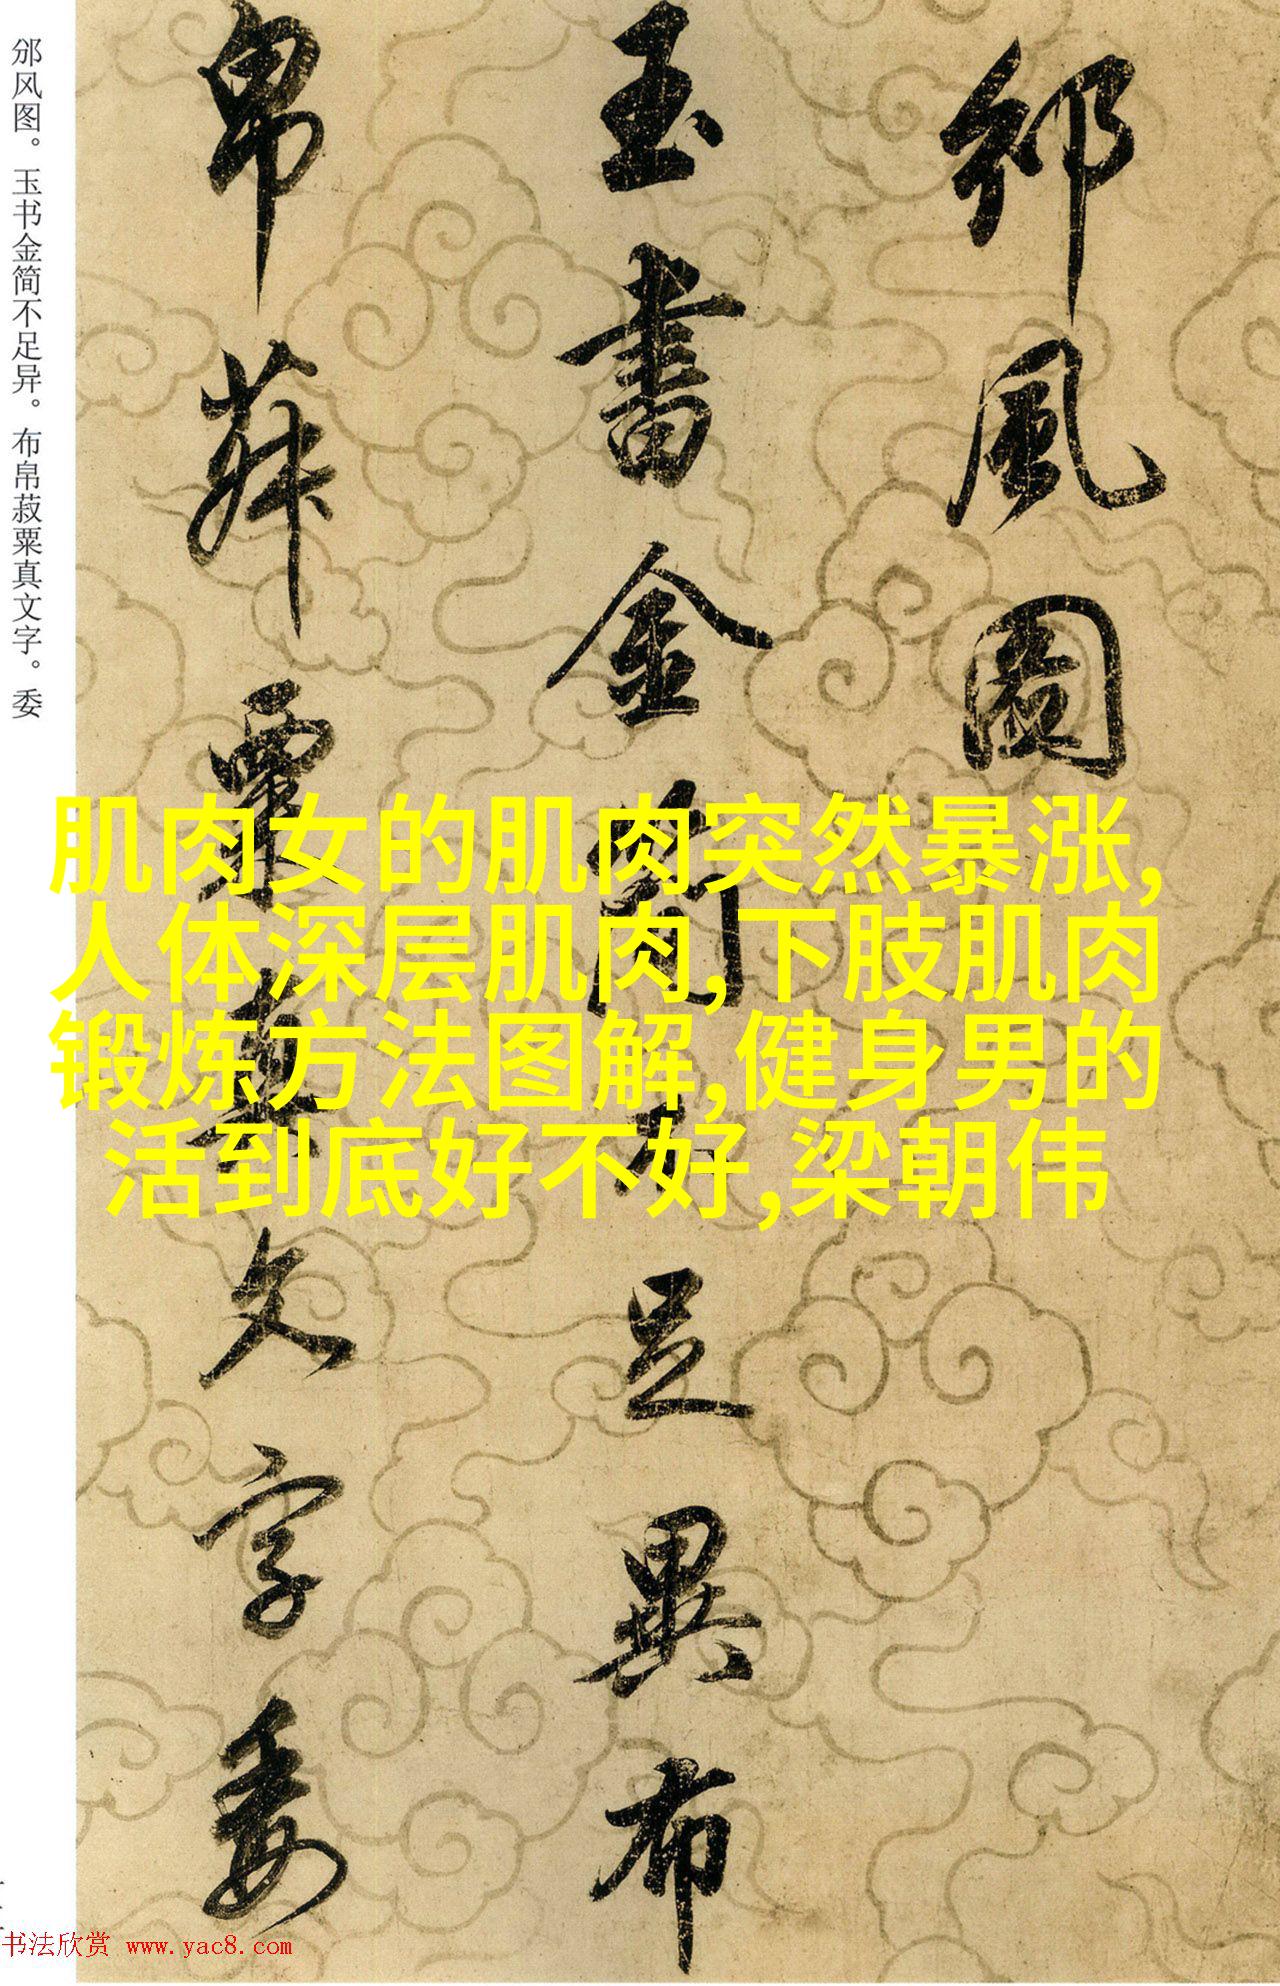 邠风图。玉书金简不足异。布帛菽粟真文字。委
邠風圖
玉書金簡不足異布
帛菽粟真文字委
肌肉女的肌肉突然暴涨,
人体深层肌肉,下肢肌肉
锻炼方法图解,健身男的
活到底好不好,梁朝伟
书法欣赏 www.yac8.com